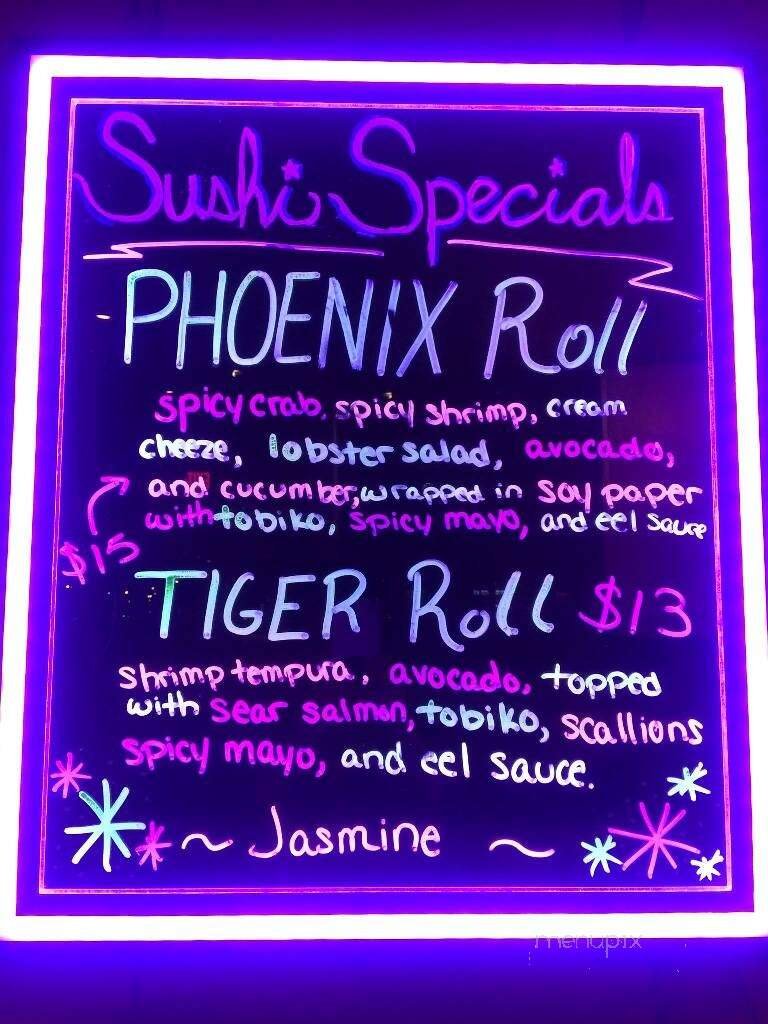 Sushi Specials
PHOENIX Roll
spicy crab, spicy shrimp, cream
cheeze, lobster salad, avocado,
and cucumber, wrapped in soy paper
with tobiko, spicy mayo, and eel sauce
$15
TIGER Roll $13
shrimp tempura, avocado, topped
with sear salmon, tobiko, scallions
spicy mayo, and eel sauce.
~ Jasmine ~
menupix